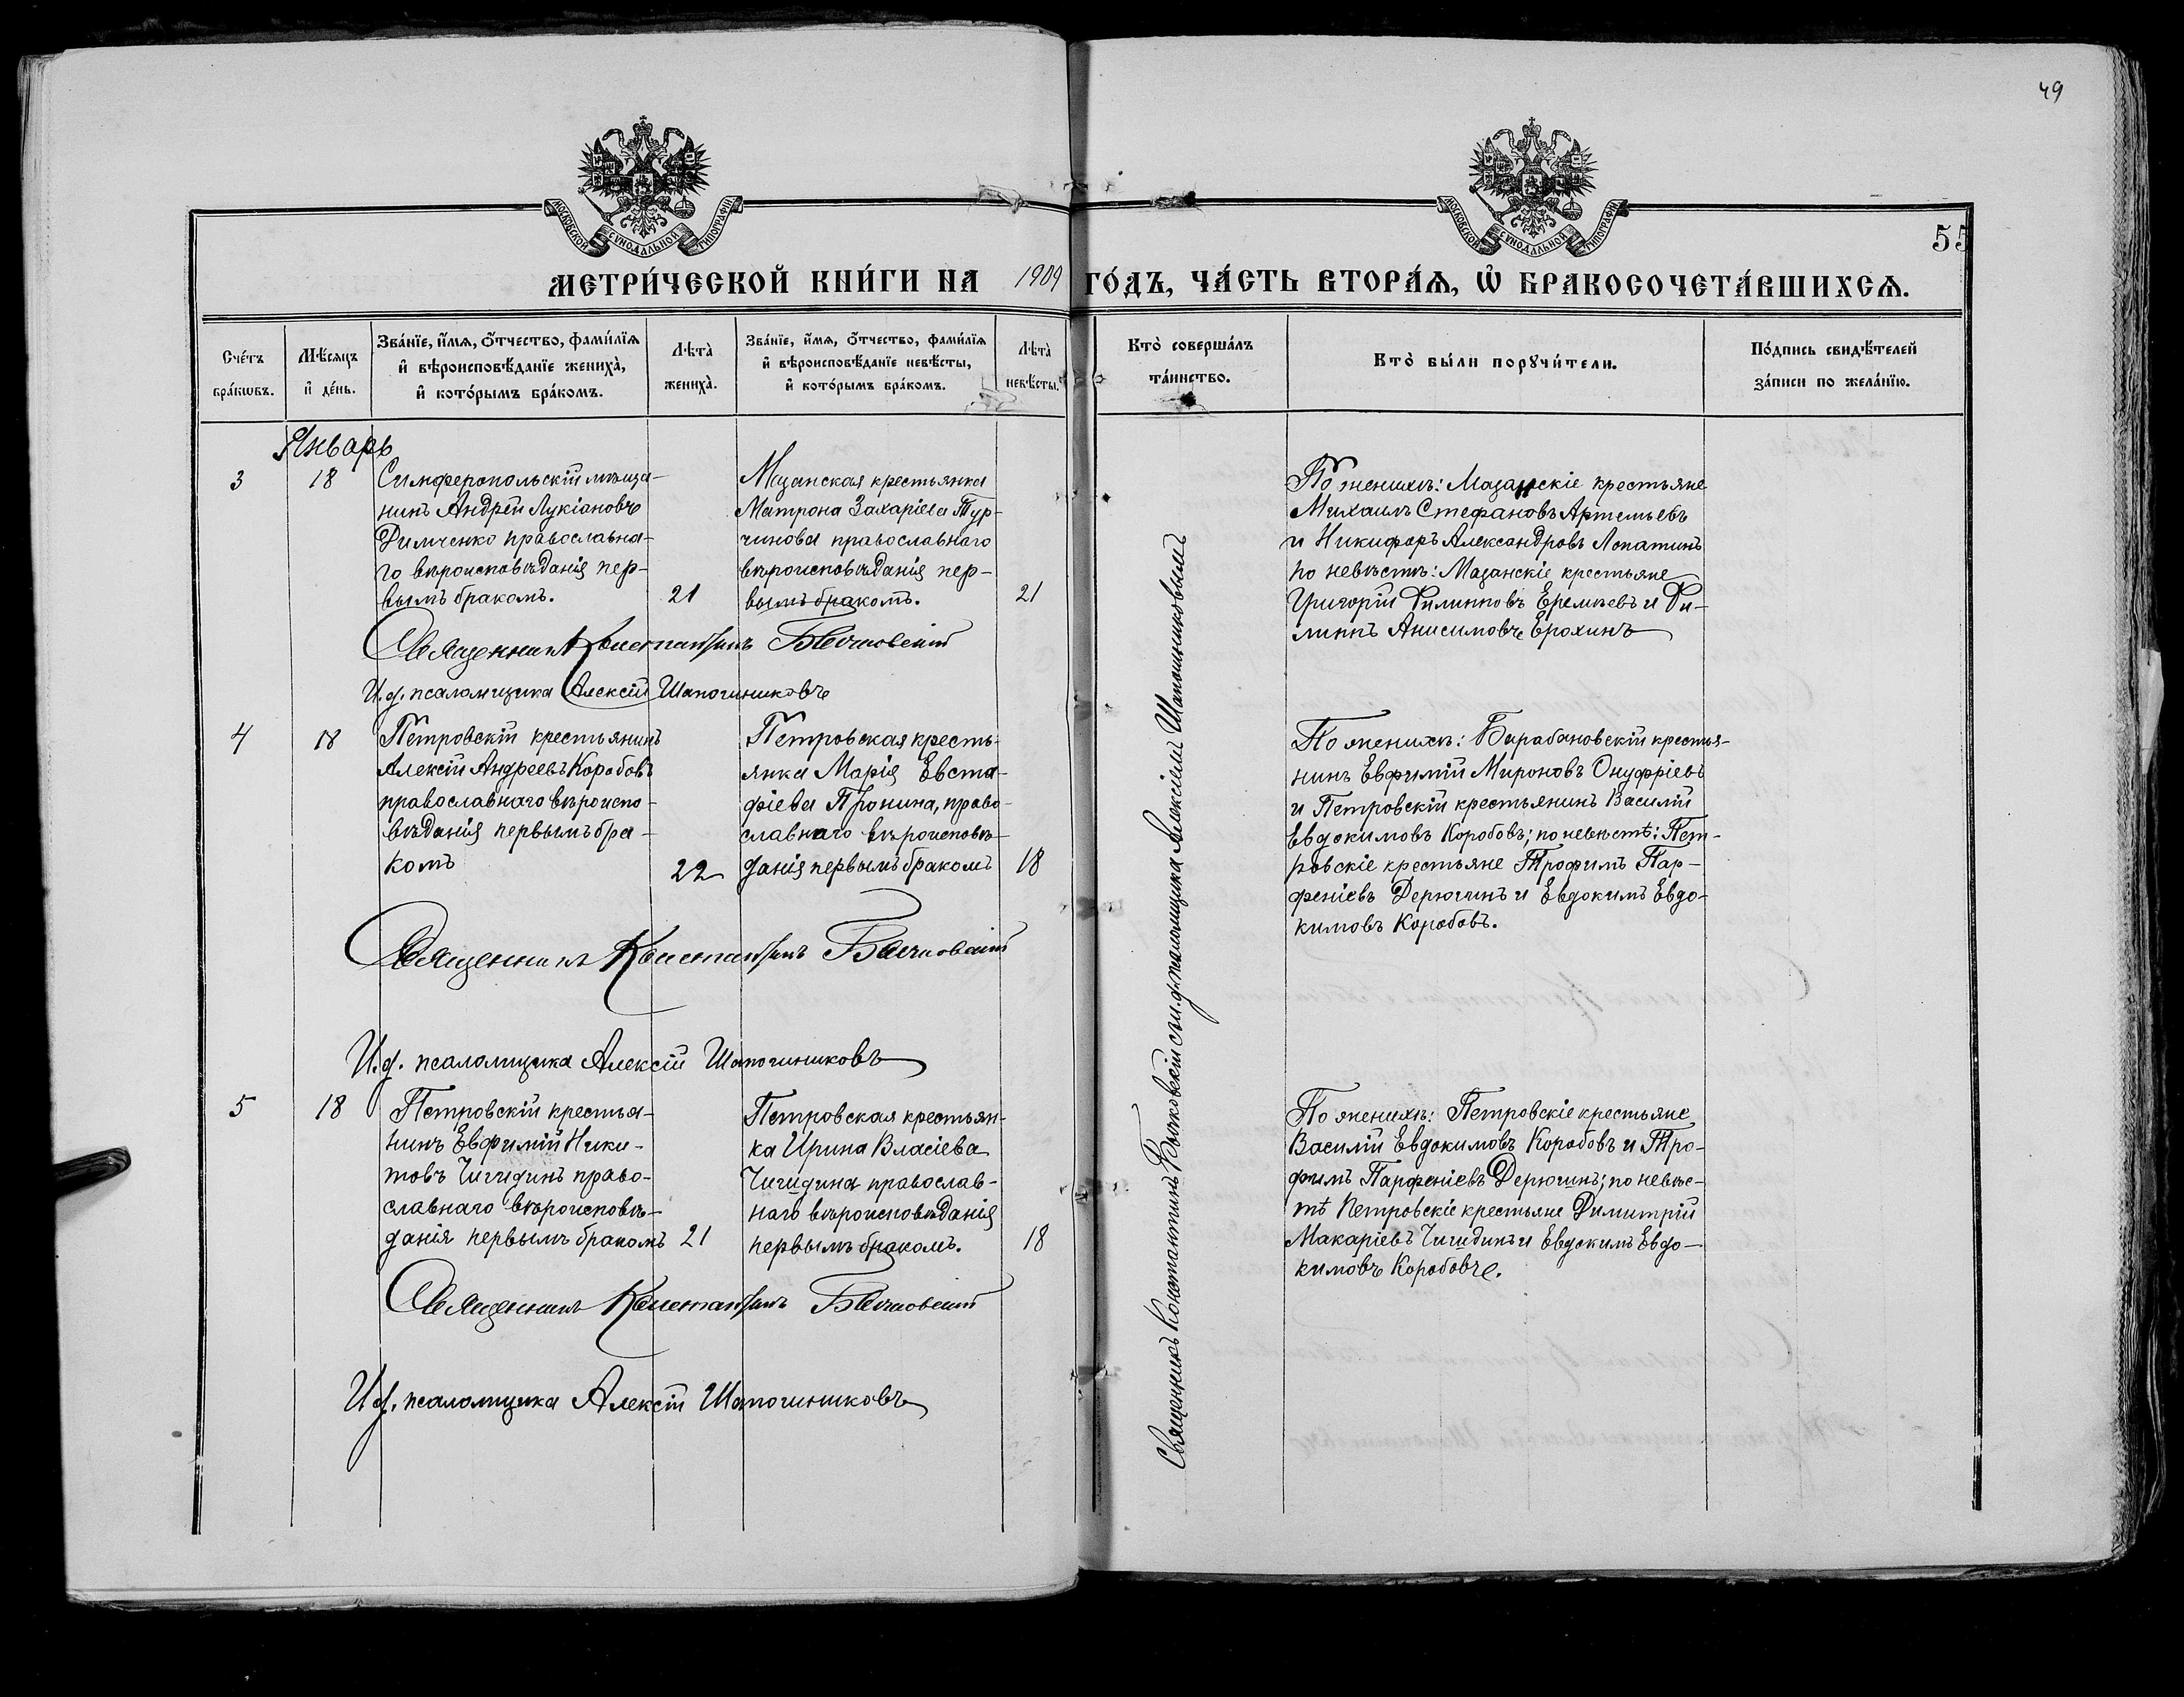 49
МОСКОВСКОЙ СѴНОДАЛЬНОЙ ТИПОГРАФІИ
МОСКОВСКОЙ СѴНОДАЛЬНОЙ ТИПОГРАФІИ
55
МЕТРИ́ЧЕСКОЙ КНИ́ГИ НА 1909 ГО́ДЪ, ЧА́СТЬ ВТОРА́Ѧ, Ѽ БРАКОСОЧЕТА́ВШИХСѦ.
Сче́тъ бра́кѡвъ.
Мѣ́сяцъ и де́нь.
Зва́нїе, и́мѧ, ѻ́тчество, фами́лїѧ
и вѣроисповѣ́данїе жениха̀,
и кото́рымъ бра́комъ.
Лѣта̀ жениха̀.
Зва́нїе, и́мѧ, ѻ́тчество, фами́лїѧ
и вѣроисповѣ́данїе невѣ́сты,
и кото́рымъ бра́комъ.
Лѣта̀ невѣ́сты.
Кто̀ соверша́лъ
та́инство.
Кто̀ бы́ли порꙋчи́тели.
По́дпись свидѣ́телей
за́писи по жела́нїю.
Январь
3
18
Симферопольскій мѣща-
нинъ Андрей Лукіановъ
Димченко православна-
го вѣроисповѣданія пер-
вымъ бракомъ.
21
Мазанская крестьянка
Матрона Захаріева Тур-
чинова православнаго
вѣроисповѣданія пер-
вымъ бракомъ.
21
По женихѣ: Мазанскіе крестьяне
Михаилъ Стефановъ Артемьевъ
и Никифоръ Александровъ Лопатинъ
по невѣстѣ: Мазанскіе крестьяне
Григорій Филипповъ Еремѣевъ и Фи-
липпъ Анисимовъ Ерохинъ
Священникъ Константинъ Бычковскій
И.д. псаломщика Алексій Шапошниковъ
4
18
Петровскій крестьянинъ
Алексій Андреевъ Коробовъ
православнаго вѣроиспо-
вѣданія первымъ бра-
комъ
22
Петровская кресть-
янка Марія Евста-
фіева Пронина, право-
славнаго вѣроисповѣ-
данія первымъ бракомъ
18
По женихѣ: Барабановскій крестья-
нинъ Евфимій Мироновъ Онуфріевъ
и Петровскій крестьянинъ Василій
Евдокимовъ Коробовъ; по невѣстѣ: Пет-
ровскіе крестьяне Трофимъ Пар-
феніевъ Дерюгинъ и Евдокимъ Евдо-
кимовъ Коробовъ.
Священникъ Константинъ Бычковскій
И.д. псаломщика Алексій Шапошниковъ
5
18
Петровскій крестья-
нинъ Евфимій Ники-
товъ Чигидинъ право-
славнаго вѣроисповѣ-
данія первымъ бракомъ
21
Петровская крестьян-
ка Ирина Власіева
Чигидина православ-
наго вѣроисповѣданія
первымъ бракомъ.
18
По женихѣ: Петровскіе крестьяне
Василій Евдокимовъ Коробовъ и Тро-
фимъ Парфеніевъ Дерюгинъ; по невѣс-
тѣ Петровскіе крестьяне Димитрій
Макаріевъ Чигидинъ и Евдокимъ Евдо-
кимовъ Коробовъ.
Священникъ Константинъ Бычковскій
И.д. псаломщика Алексій Шапошниковъ
Священникъ Константинъ Бычковскій съ и.д. псаломщика Алексіемъ Шапошниковымъ